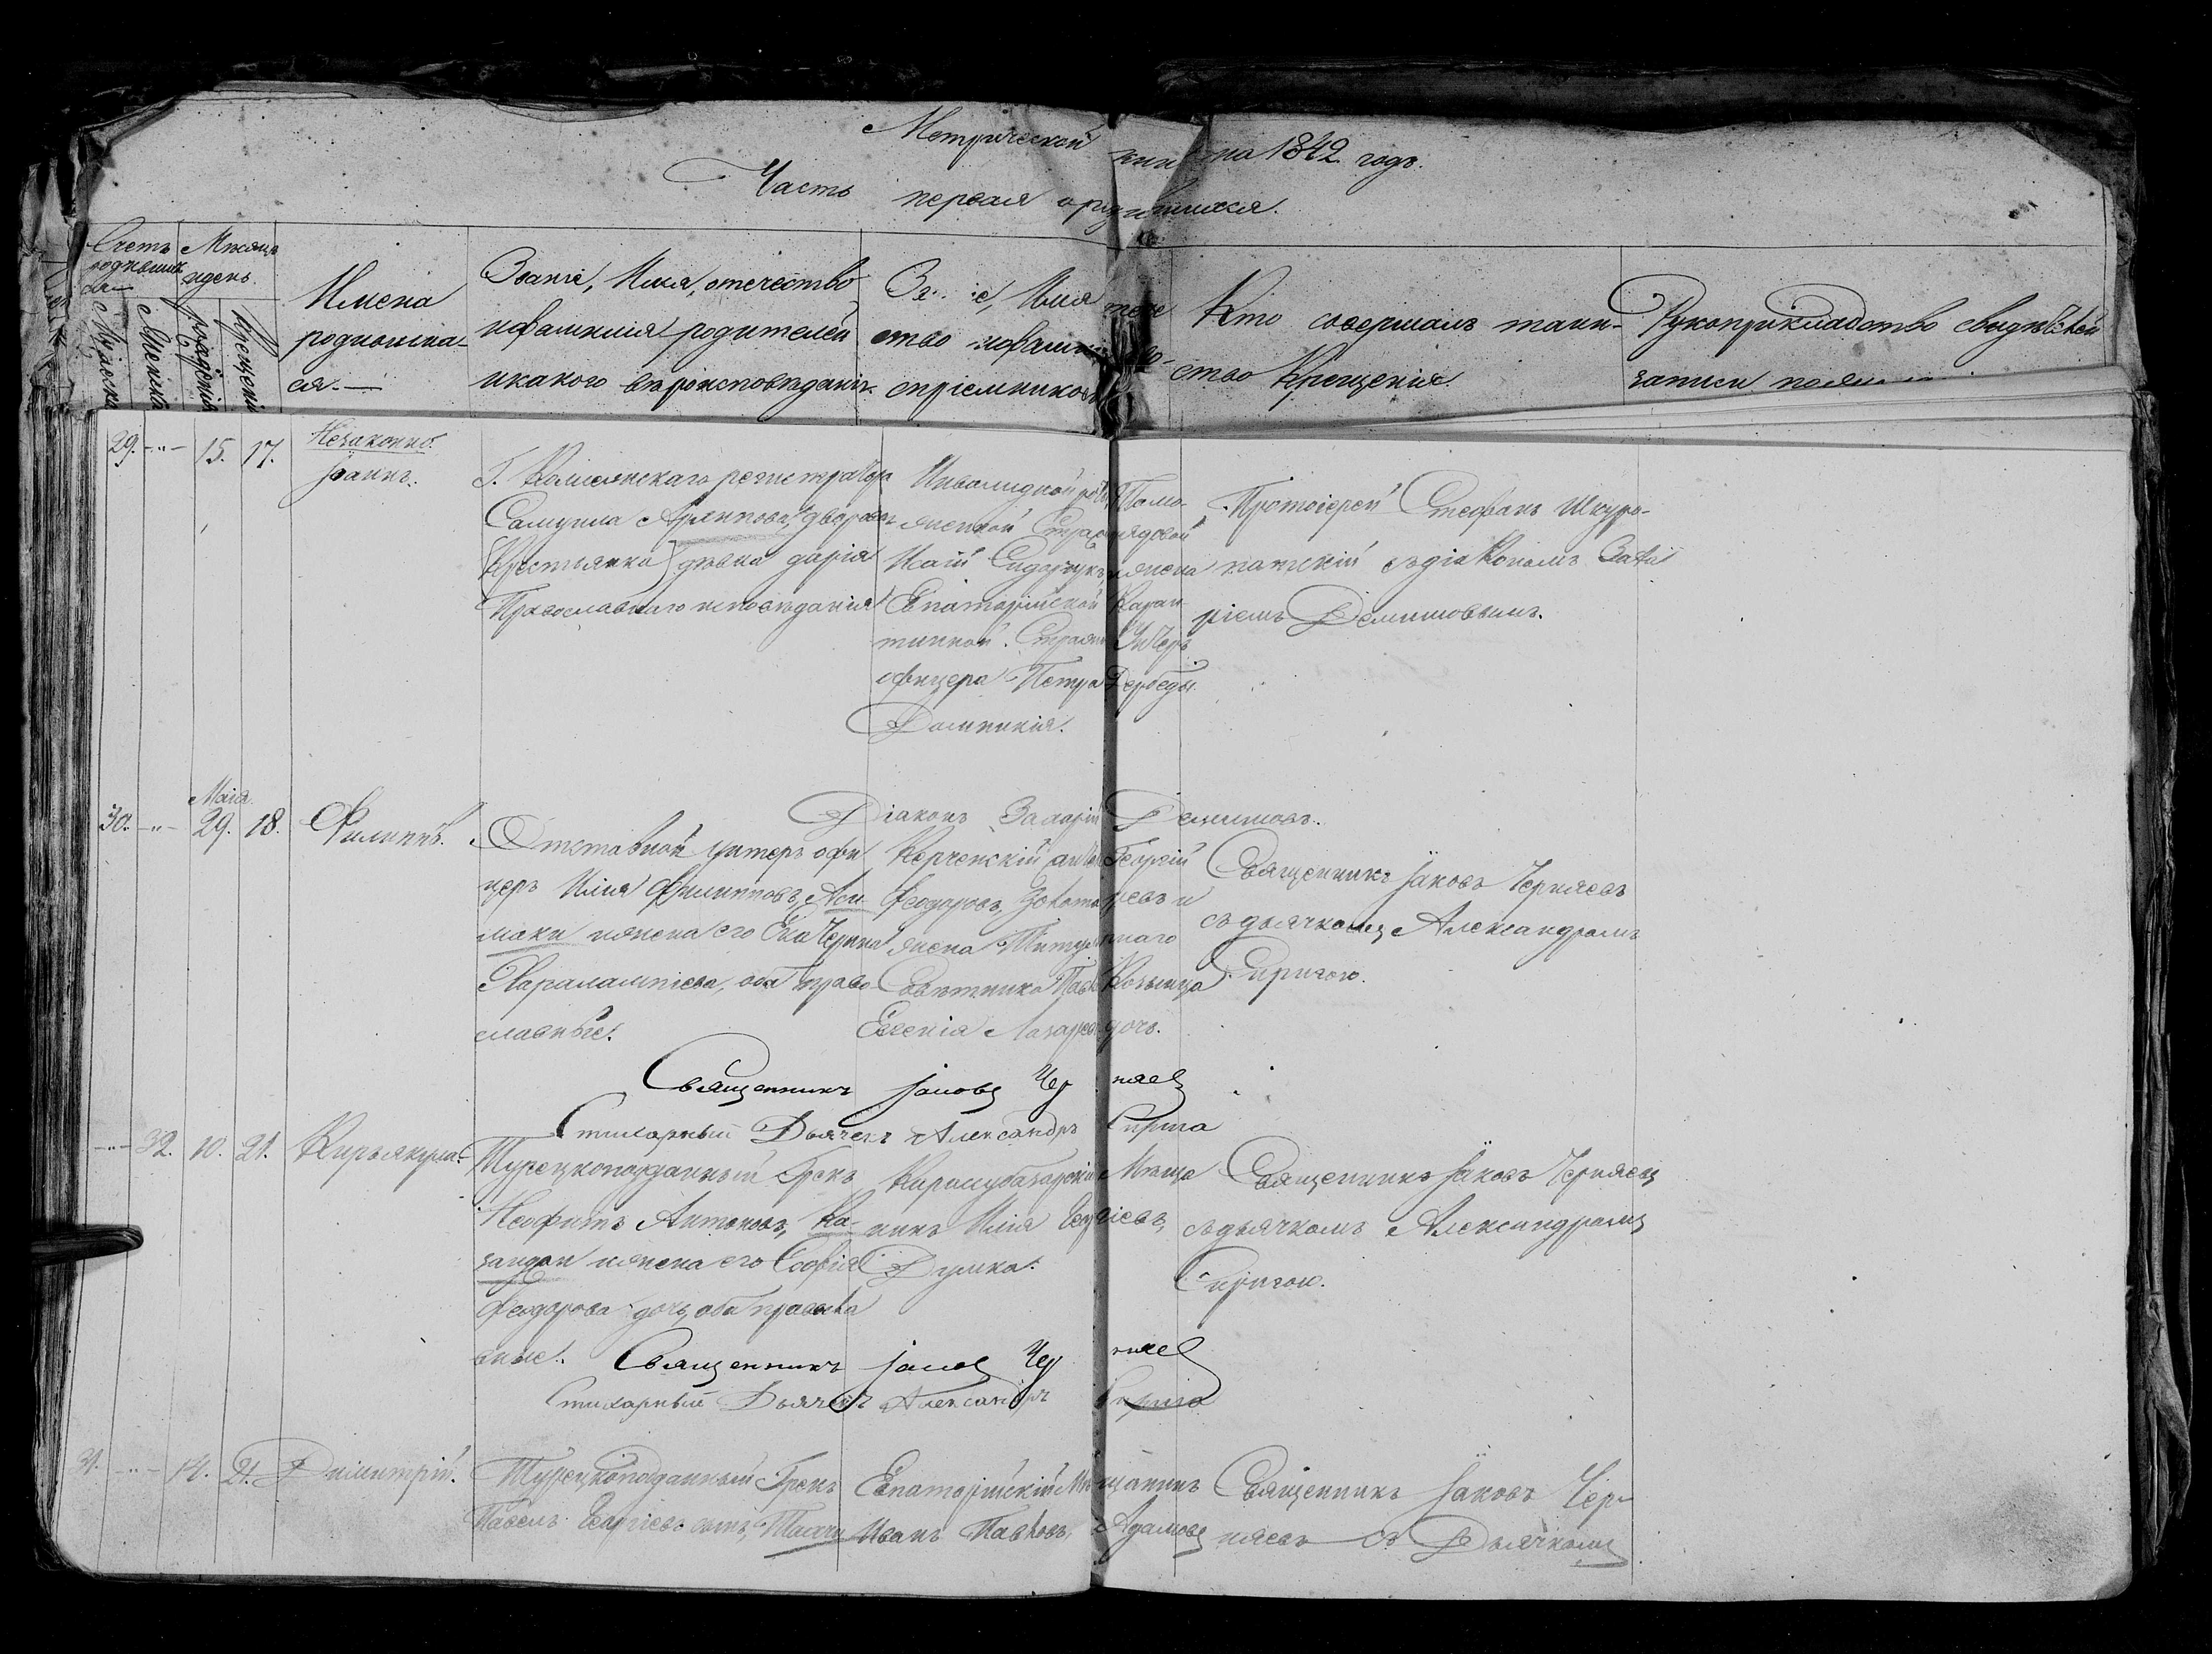 Метрической книги на 1842 годъ.
Часть первая о родившихся.
Счетъ родившихся
Мужеска
Женска
Мѣсяцъ и день.
рожденія
крещенія
Имена
родившихся.
Званіе, Имя, отечество
и фамилія родителей
и какого вѣроисповѣданія.
Званіе, Имя отече
ство и фамилія во-
спріемниковъ
Кто совершалъ таин-
ство Крещенія.
Рукоприкладство свидѣтелей
записи
29. -"- 15. 17.
Незаконно.
Іоаннъ.
Г. Коллежскаго регистратора
Самуила Архипова, дворовая
Крестьянка дѣвка Дарія
Православнаго исповѣданія
Инвалидной роты Тамо-
женной Стражи рядовой
Исай Сидорукъ, и жена
Евпаторійской Каран
тинной Стражи Унтеръ
офицера Петра Дербеды
Домникія.
Протоіерей Стефанъ Шкуро-
патскій съ діакономъ Заха
ріемъ Демишовымъ.
Діаконъ Захарій Демишовъ.
Маія
30. -"- 29. 18.
Филиппъ.
Отставной унтеръ офи
церъ Илія Филипповъ, Аси
маки и жена его Екатерина
Харалампіева, оба право
славные.
Керченскій Георгій
Феодоровъ, и
жена Титулярнаго
Совѣтника
Евгенія Лазарева дочь.
Священникъ Іаковъ Черняевъ
съ дьячкомъ Александромъ
Сиригою.
Священникъ Іаковъ Черняевъ
Стихарный Дьячекъ Александръ Сирига
-"- 32. 10. 21.
Кирьякула.
Турецкоподданный Грекъ
Неофитъ Антоновъ, Ка-
зандай и жена его Софія
Феодорова дочь, оба правосла
вные.
Карасубазарскій Мѣща
нинъ Илія Георгіевъ,
Думка.
Священникъ Іаковъ Черняевъ
съ дьячкомъ Александромъ
Сиригою.
Священникъ Іаковъ Черняевъ
Стихарный Дьячекъ Александръ Сирига
31. -"- 14. 21.
Димитрій.
Турецкоподданный Грекъ
Павелъ Георгіевъ сынъ,
Евпаторійскій Мѣщанинъ
Иванъ Павловъ, Адамовъ
Священникъ Іаковъ Чер-
няевъ съ Дьячкомъ